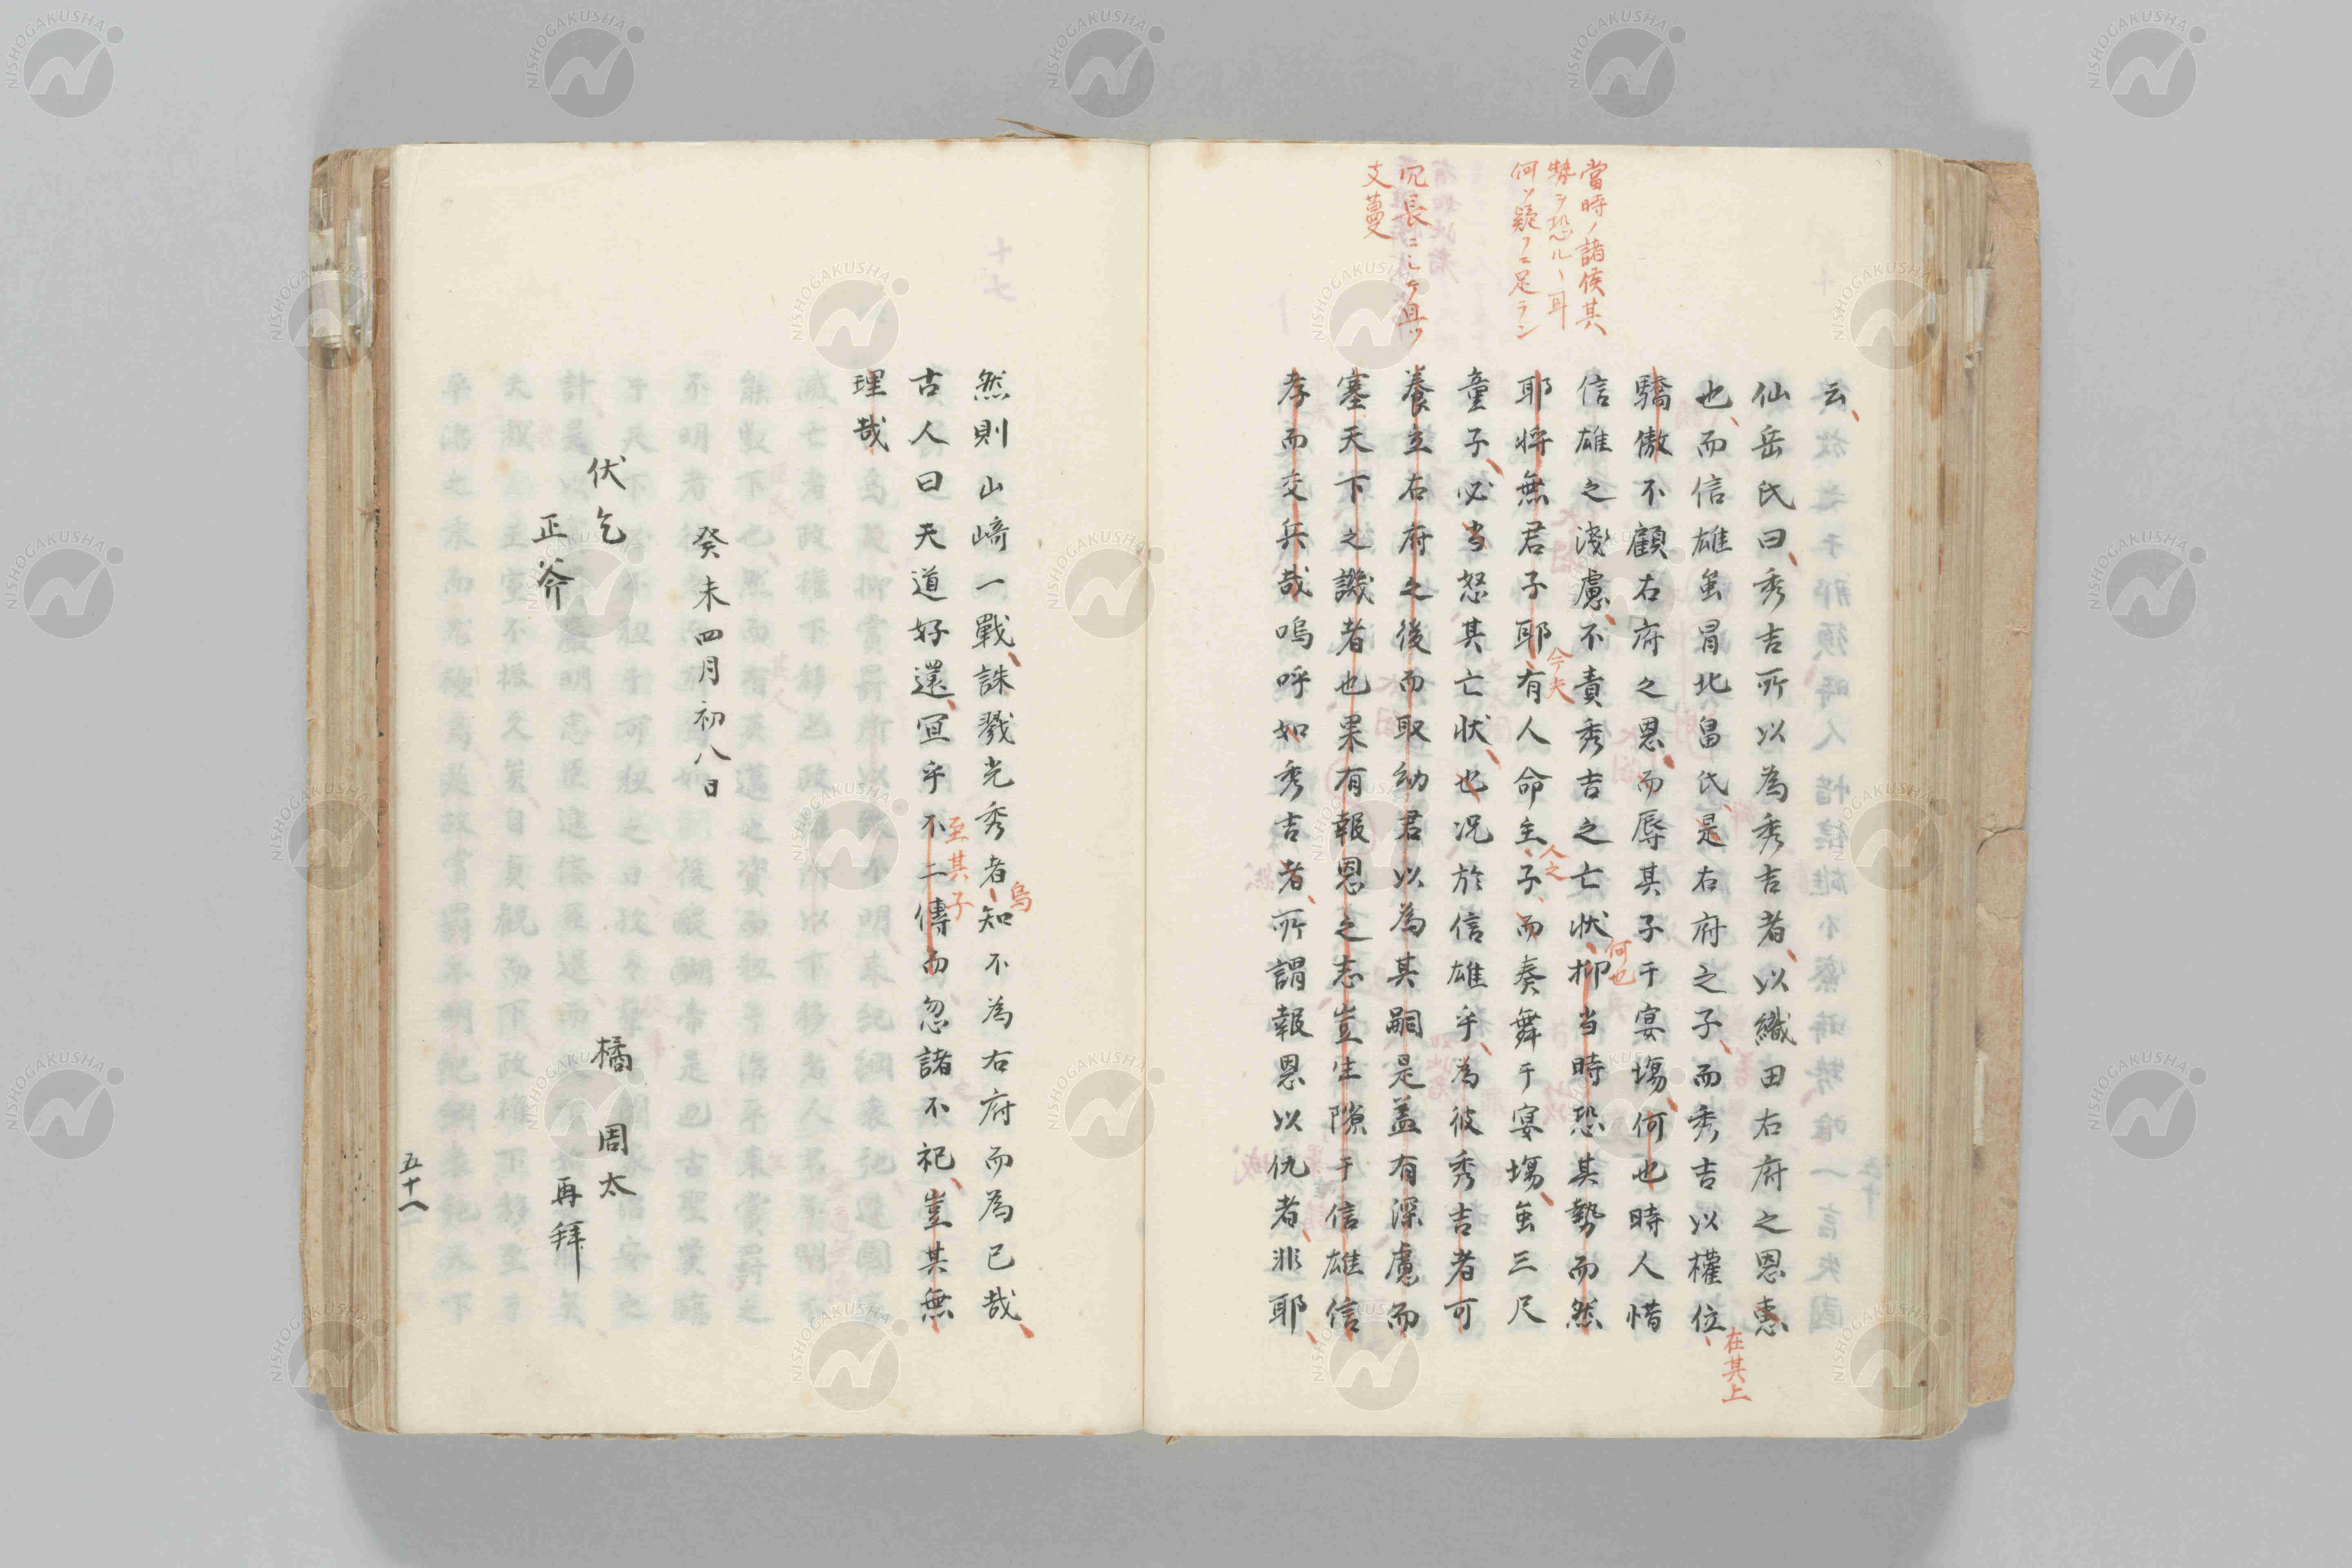 當時ノ諸侯其
勢ヲ恐ルヽ耳
何ソ疑フニ足ラン
冗長ニシテ具ツ
支蔓
云
仙岳氏曰秀吉所以為秀吉者以織田右府之恩恵
也而信雄虽冐北畠氏是右府之子而秀吉以權位
在其上
驕傲不顧右府之恩而辱其子于宴塲何也時人惜
信雄之淺慮不責秀吉之亡状抑当時恐其勢而然
何也
耶将無君子耶有人命主子而奏舞于宴塲虽三尺
今夫
人之
童子必当怒其亡状也况於信雄乎為彼秀吉者可
養立右府之後而取幼君以為其嗣是盖有深慮而
塞天下之譏者也果有報恩之志豈生隙于信雄信
孝而交兵哉嗚呼如秀吉者所謂報恩以仇者非耶
然則山﨑一戰誅戮光秀者知不為右府而為已哉
烏
古人曰天道好還冝乎不二傳而忽諸不祀豈其無
至其子
理哉
癸未四月初八日
伏乞
正斧
橘周太
再拜
五十八
NISHOGAKUSHA